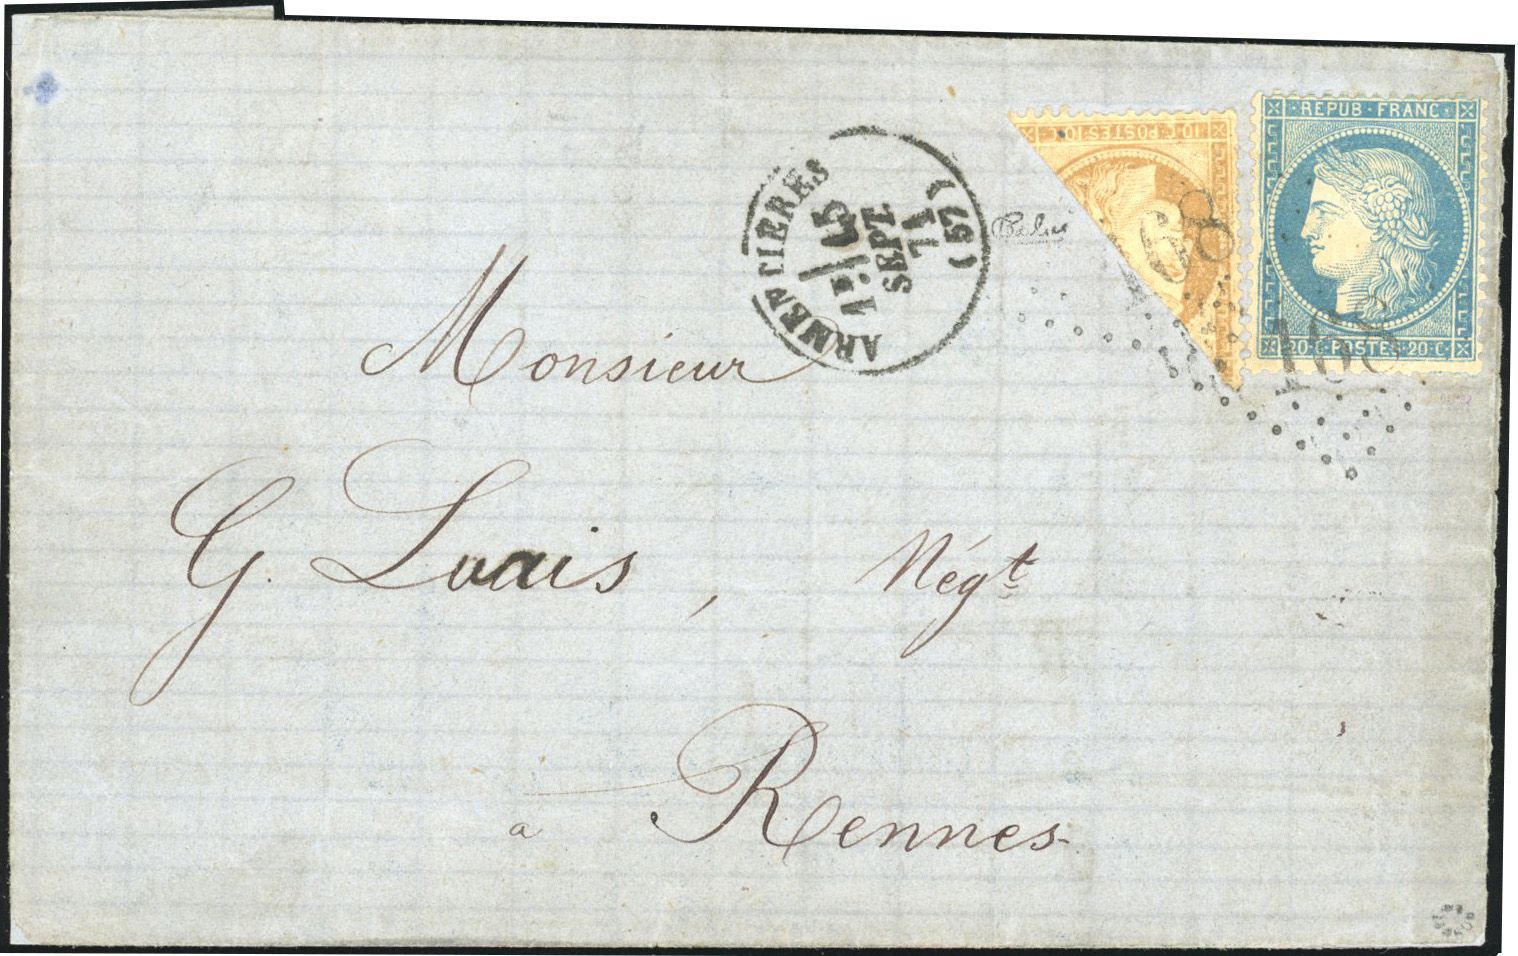 REPUB · FRANC
10 C POSTES 10 C
20 · C · POSTES · 20 · C
ARMENTIERES
(57)
SEPT
71
168
168
Monsieur
G. Louis, Négt
a Rennes